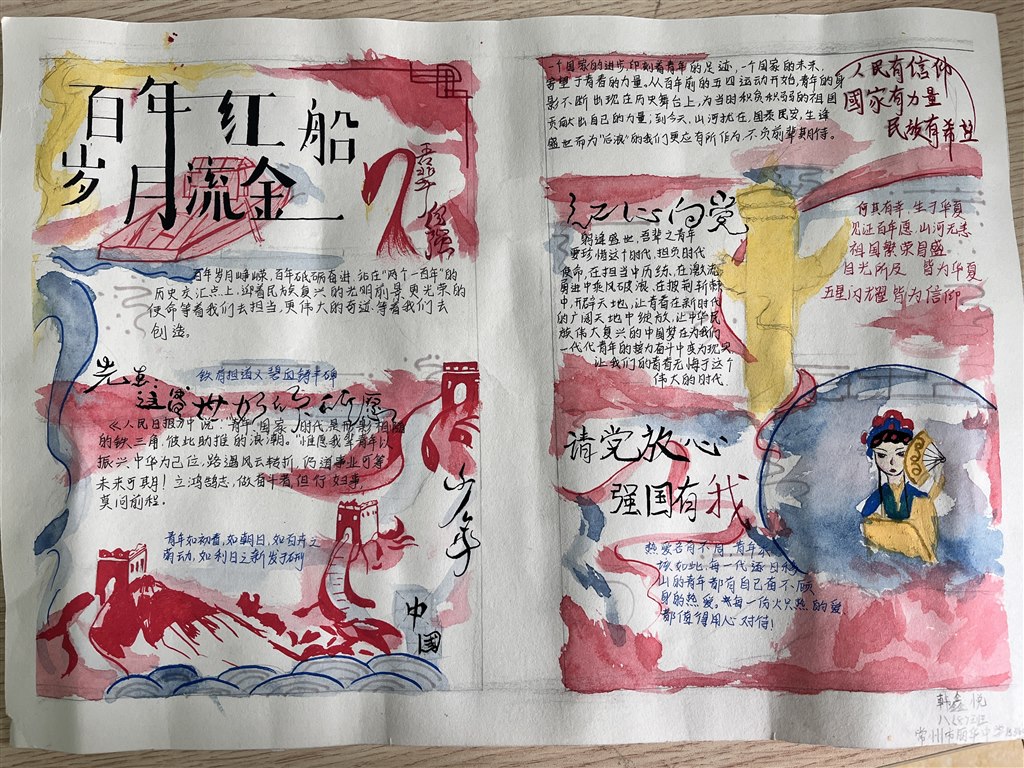 百年红船
岁月流金
吾辈自强
百年岁月峥嵘，百年砥砺奋进，站在“两个一百年”的
历史交汇点上，迎着民族复兴的光明前景，更光荣的
使命等着我们去担当，更伟大的奇迹，等着我们去
创造。
先生，
这盛世如您所愿
铁肩担道义 碧血铸丰碑
《人民日报》中说：“青年、国家、时代是形影相随
的铁三角，彼此助推的浪潮。”惟愿我辈青年以
振兴中华为己位，路遇风云转折，仍道事业可等
未来可期！立鸿鹄志，做奋斗者，但行好事，
莫问前程。
青年如初春，如朝日，如百卉之
萌动，如利刃之新发于硎
少年
中国
一个国家的进步，印刻着青年的足迹，一个国家的未来，
寄望于青春的力量。从百年前的五四运动开始，青年的身
影不断出现在历史舞台上，为当时积贫积弱的祖国
贡献出自己的力量；到今天，山河犹在，国泰民安，生逢
盛世而为“后浪”的我们更应有所作为，不负前辈期待。
人民有信仰
國家有力量
民族有希望
红心向党
躬逢盛世，吾辈之青年
更珍惜这个时代，担负时代
使命，在担当中历练，在激流
勇进中乘风破浪、在披荆斩棘
中，开辟天地，让青春在新时代
的广阔天地中绽放，让中华民
族伟大复兴的中国梦在为我们
一代代青年的接力奋斗中变为现实
让我们的青春无悔于这个
伟大的时代.
何其有幸，生于华夏
见证百年愿，山河无恙
祖国繁荣昌盛
目光所及 皆为华夏
五星闪耀 皆为信仰
请党放心
强国有我
热爱各有不同，青年
族如此，每一代逐日移
山的青年都有自己奋不顾
身的热爱，每一份火只热的爱
都值得用心对待！
韩鑫悦